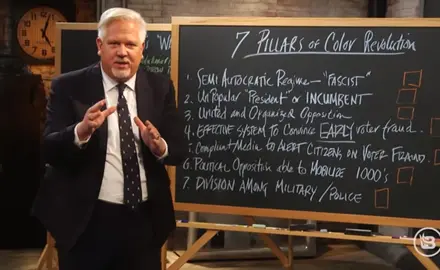 "W
7 PILLARS of COLOR REVOLUTION
1. SEMI AUTOCRATIC REGIME - "FASCIST"
2. UNPOPULAR "PRESIDENT" or INCUMBENT
3. UNITED and ORGANIZED OPPOSITION
4. EFFECTIVE SYSTEM to CONVINCE EARLY voter fraud.
5. Compliant Media to ALERT CITIZENS on VOTER FRAUD.
6. POLITICAL OPPOSITION able to MOBILIZE 1000's
7. DIVISION AMONG MILITARY/POLICE
B